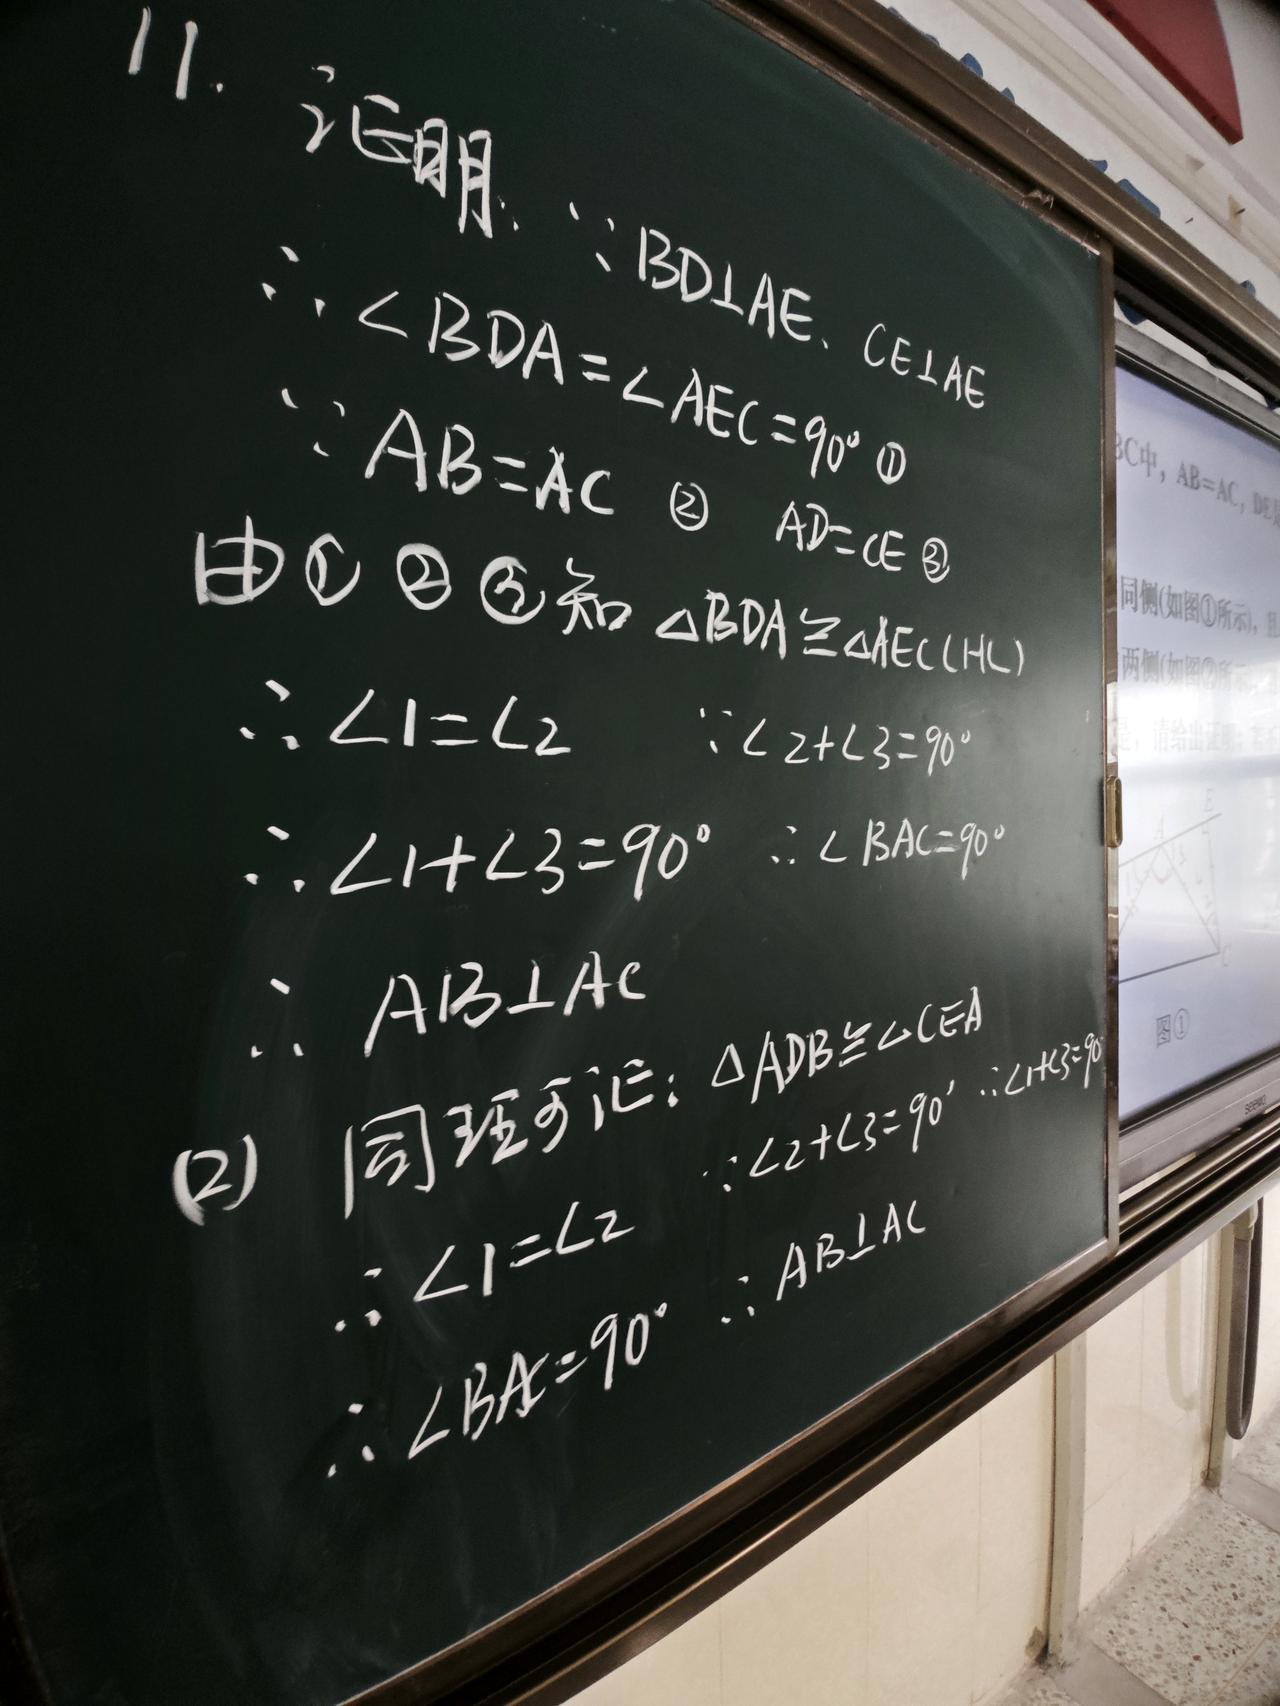 11. 证明: ∵BD⊥AE、CE⊥AE
∴∠BDA=∠AEC=90° ①
∵AB=AC ② AD=CE ③
由①②③知 △BDA≌△AEC(HL)
∴∠1=∠2 ∵∠2+∠3=90°
∴∠1+∠3=90° ∴∠BAC=90°
∴ AB⊥AC
(2) 同理可证: △ADB≌△CEA
∴∠1=∠2 ∵∠2+∠3=90° ∴∠1+∠3=90°
∴∠BAC=90° ∴AB⊥AC
BC中, AB=AC, DE
同侧(如图①所示), 且
两侧(如图②所示
是, 请给出证明;
A
E
C
图①